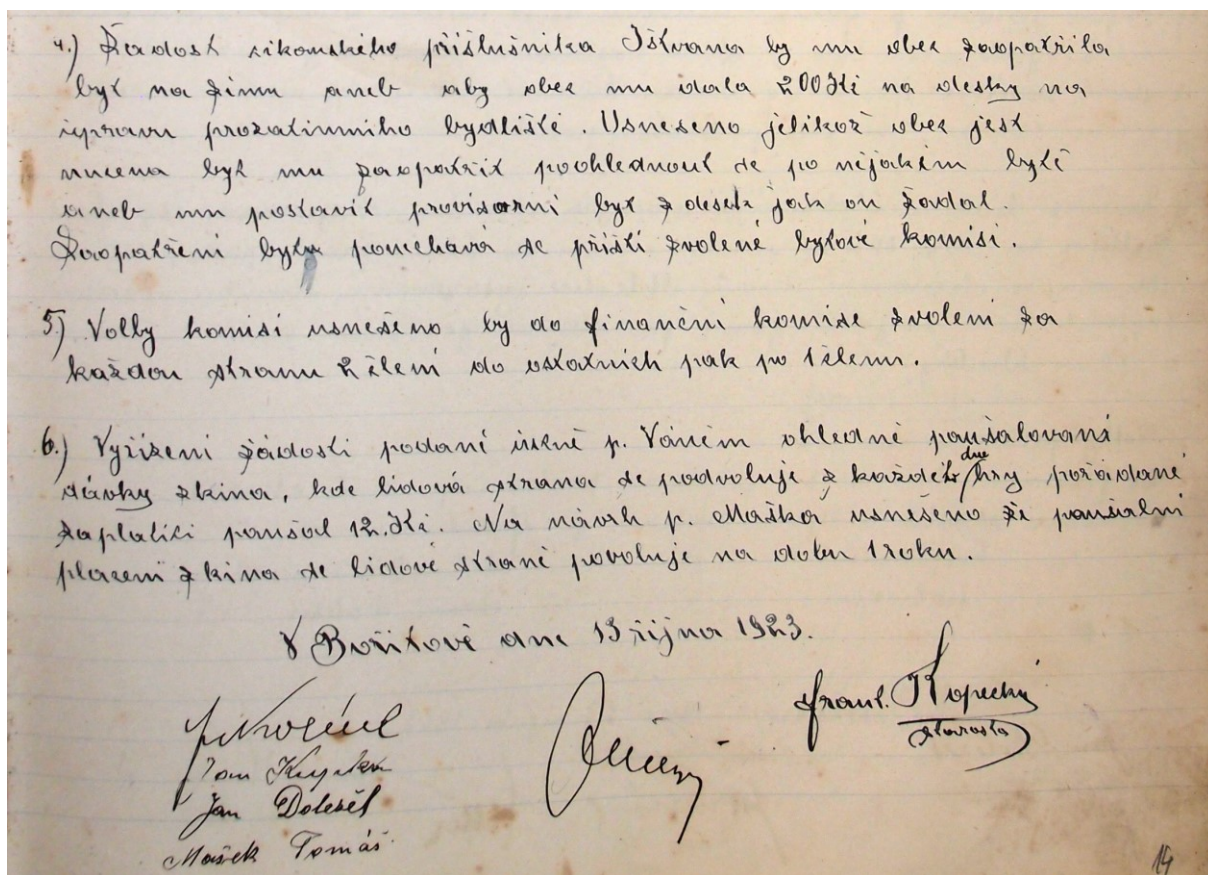 4.) Žadost cikanského příslušnika Ištvana by mu obec zaopatřila
byt na zimu aneb aby obec mu dala 200 Kč na desky na
úpravu prozatimního bydliště. Usneseno jelikož obec jest
nucena byt mu zaopatřit poohlednout se po nějakém bytě
aneb mu postavit provisorní byt z desek jak on žadal.
Zaopatření bytu ponechává se příští zvolené bytové komisi.
5) Volby komisí usnešeno by do finanční komise zvoleni za
každou stranu 2 členi do ostatnich pak po 1 členu.
6.) Vyřízení žádosti podaní ústně p. Váněm ohledně paušalovaní
dávky z kina, kde lidová strana se podvoluje z každého dne hry pořádané
zaplatiti paušal 12. Kč. Na návrh p. Maška usnešeno že paušalní
placení z kina se lidové straně povoluje na dobu 1 roku.
V Bořitově dne 13 října 1923.
Frant. Kopecký
starosta
Jan Kupka
Jan Doležel
Mašek Tomáš
14